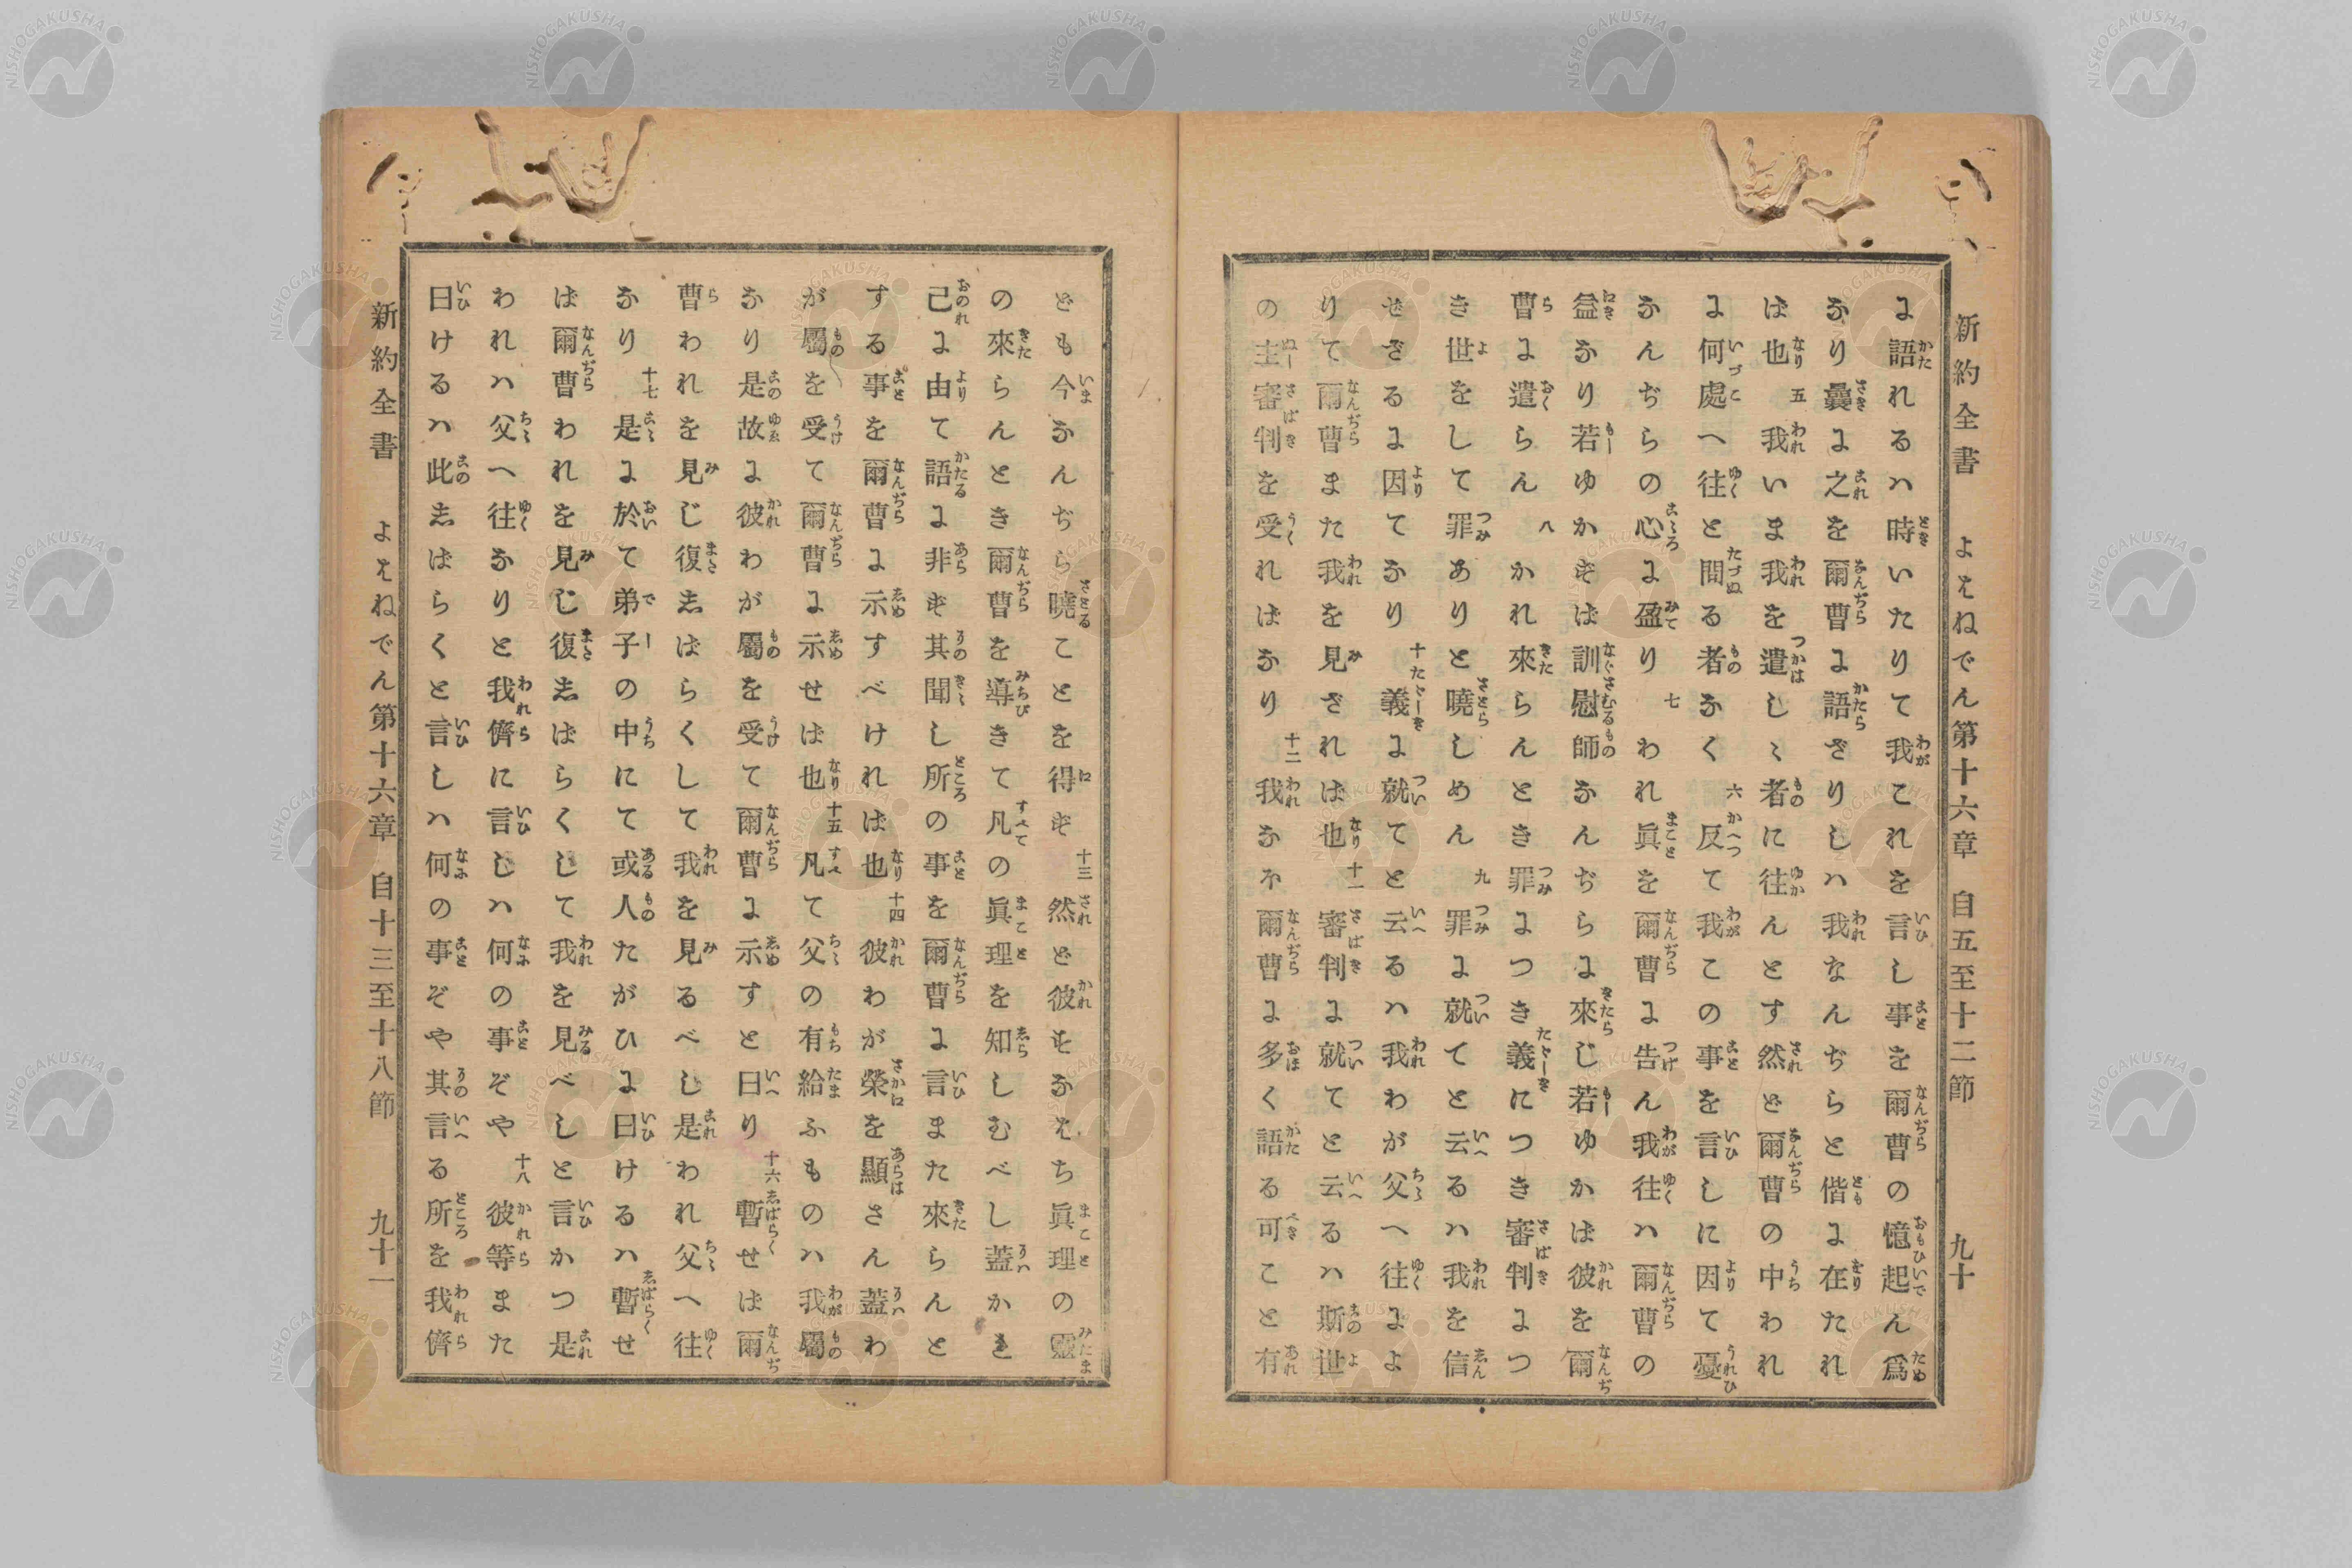 新約全書 よはねでん第十六章 自五至十二節 九十
に語れるハ時いたりて我これを言し事を爾曹の憶起ん爲
なり曩に之を爾曹に語ざりしハ我なんぢらと偕に在たれ
ば也 五 我いま我を遣しゝ者に往んとす然ど爾曹の中われ
に何處へ往と問る者なく 六 反て我この事を言しに因て憂
なんぢらの心に盈り 七 われ眞を爾曹に告ん我往ハ爾曹の
益なり若ゆかずば訓慰師なんぢらに來じ若ゆかば彼を爾
曹に遣らん 八 かれ來らんとき罪につき義につき審判につ
き世をして罪ありと曉しめん 九 罪に就てと云るハ我を信
せざるに因てなり 十 義に就てと云るハ我わが父へ往によ
りて爾曹また我を見ざれば也 十一 審判に就てと云るハ斯世
の主審判を受ればなり 十二 我なホ爾曹に多く語る可こと有
ども今なんぢら曉ことを得ず 十三 然ど彼すなはち眞理の靈
の來らんとき爾曹を導きて凡の眞理を知しむべし蓋かれ
己に由て語に非ず其聞し所の事を爾曹に言また來らんと
する事を爾曹に示すべければ也 十四 彼わが榮を顯さん蓋わ
が屬を受て爾曹に示せば也 十五 凡て父の有給ふものハ我屬
なり是故に彼わが屬を受て爾曹に示すと曰り 十六 暫せば爾
曹われを見じ復しばらくして我を見るべし是われ父へ往
なり 十七 是に於て弟子の中にて或人たがひに曰けるハ暫せ
ば爾曹われを見じ復しばらくして我を見べしと言かつ是
われハ父へ往なりと我儕に言しハ何の事ぞや 十八 彼等また
曰けるハ此しばらくと言しハ何の事ぞや其言る所を我儕
新約全書 よはねでん第十六章 自十三至十八節 九十一